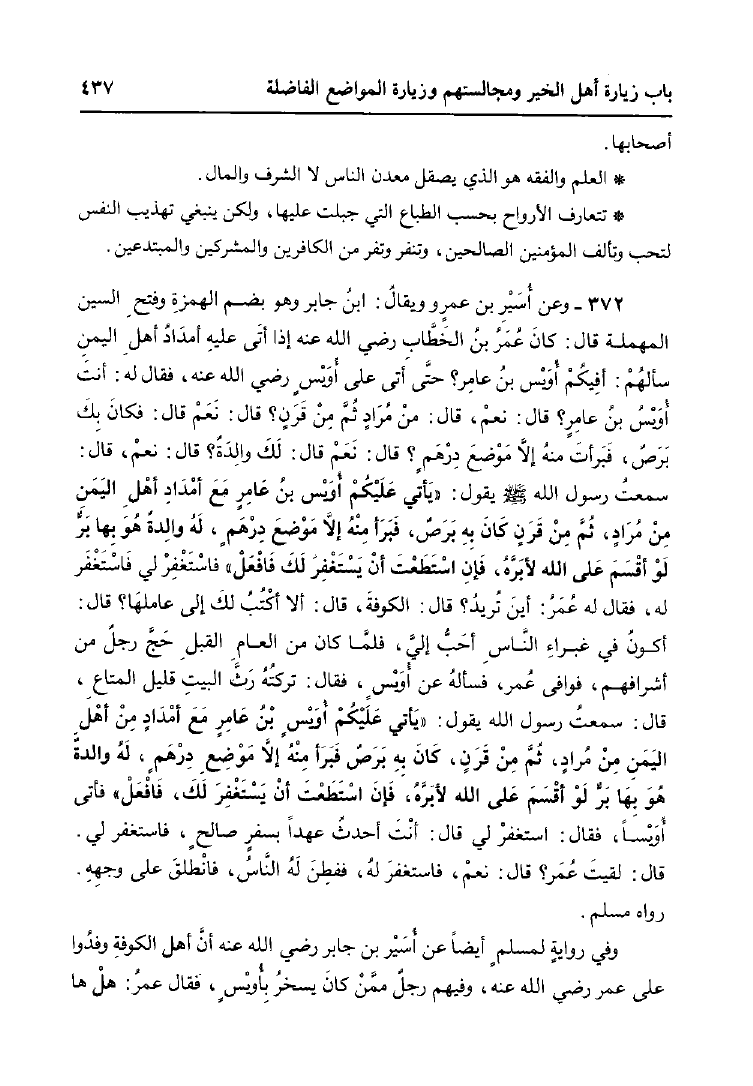 باب زيارة أهل الخير ومجالستهم وزيارة المواضع الفاضلة ٤٣٧
أصحابها.
* العلم والفقه هو الذي يصقل معدن الناس لا الشرف والمال.
* تتعارف الأرواح بحسب الطباع التي جبلت عليها، ولكن ينبغي تهذيب النفس
لتحب وتألف المؤمنين الصالحين، وتنفر وتفر من الكافرين والمشركين والمبتدعين.
٣٧٢ - وعن أُسَيْر بن عمرٍو ويقالُ: ابنُ جابر وهو بضم الهمزةِ وفتح السين
المهملة قال: كانَ عُمَرُ بنُ الخطَّاب رضي الله عنه إذا أتَى عليهِ أمدَادُ أهلِ اليمنِ
سألهُمْ: أفيكُمْ أُوَيْس بنُ عامِر؟ حتَّى أتى على أُوَيْسٍ رضي الله عنه، فقال له: أنتَ
أُوَيْسُ بنُ عامِرٍ؟ قال: نعمْ، قال: منْ مُرَادٍ ثُمَّ مِنْ قَرَنٍ؟ قال: نَعَمْ قال: فكانَ بِكَ
بَرَصٌ، فَبَرأتَ منهُ إلَّا مَوْضعَ دِرْهَمٍ؟ قال: نَعَمْ قال: لَكَ والِدَةٌ؟ قال: نعمْ، قال:
سمعتُ رسول الله ﷺ يقول: «يَأتي عَلَيْكُمْ أُوَيْس بنُ عَامِرٍ مَعَ أمْدَادِ أهْلِ اليَمَنِ
مِنْ مُرَادٍ، ثُمَّ مِنْ قَرَنٍ كَانَ بِهِ بَرَصٌ، فَبَرَأ مِنْهُ إلَّا مَوْضعَ دِرْهَمٍ، لَهُ والدةٌ هُوَ بها بَرٌّ
لَوْ أقْسَمَ على الله لأبَرَّهُ، فَإنِ اسْتَطَعْتَ أنْ يَسْتَغْفِرَ لَكَ فَافْعَلْ» فاسْتَغْفِرْ لي فَاسْتَغْفَرَ
له، فقال له عُمَرُ: أينَ تُريدُ؟ قال: الكوفَةَ، قال: ألا أكْتُبُ لكَ إلى عاملهَا؟ قال:
أكونُ في غبراءِ النَّاسِ أحَبُّ إليَّ، فلمَّا كان من العامِ القبلِ حَجَّ رجلٌ من
أشرافهم، فوافى عُمر، فسألهُ عن أُوَيْسٍ، فقال: تركتُهُ رَثَّ البيتِ قليل المتاع،
قال: سمعتُ رسول الله يقول: «يَأتي عَلَيْكُمْ أُوَيْسٍ بْنُ عَامِرٍ مَعَ أمْدَادٍ مِنْ أهْلِ
اليَمَنِ مِنْ مُرادٍ، ثُمَّ مِنْ قَرَنٍ، كَانَ بِهِ بَرَصٌ فَبَرَأ مِنْهُ إلَّا مَوْضعَ دِرْهَمٍ، لَهُ والدةٌ
هُوَ بِهَا بَرٌّ لَوْ أقْسَمَ عَلى الله لأبَرَّهُ، فَإنَ اسْتَطَعْتَ أنْ يَسْتَغْفِرَ لَكَ، فَافْعَلْ» فأتى
أُوَيْساً، فقال: استغفرْ لي قال: أنْتَ أحدثُ عهداً بسفرٍ صالحٍ، فاستغفر لي.
قال: لقيتَ عُمَرَ؟ قال: نعمْ، فاستغفرَ لهُ، ففطِنَ لَهُ النَّاسُ، فَانْطلقَ على وجههِ.
رواه مسلم.
وفي روايةٍ لمسلمٍ أيضاً عن أُسَيْر بن جابر رضي الله عنه أنَّ أهل الكوفةِ وفدُوا
على عمر رضي الله عنه، وفيهم رجلٌ ممَّنْ كانَ يسخرُ بأُويْسٍ، فقال عمرُ: هلْ ها